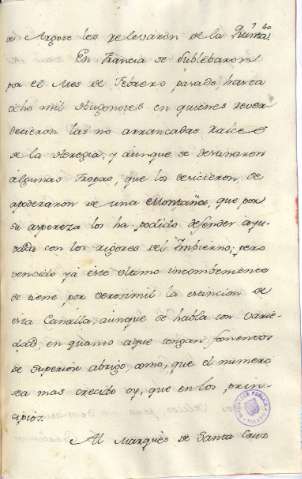 de Argose les relevaron de la Quinta.
En Francia se sublebaron
por el Mes de Febrero pasado hasta
ocho mil Hugonotes en quienes rever
decieron las no arrancadas raices
de la Heregia, y aunque se destinaron
algunas tropas, que los desicieron, se
apoderaron de una Montaña, que por
su aspereza los ha podido defender ayu
dados con los rigores del Imbierno; pero
vencido yá este ultimo incombeniente
se tiene por verosimil la extincion de
esta Canalla, aunque se habla con varie
dad en quanto a que tengan fomentos
de superior abrigo como, que el numero
sea mas crecido oy, que en los prin
cipios.
Al Marqués de Santa Cruz